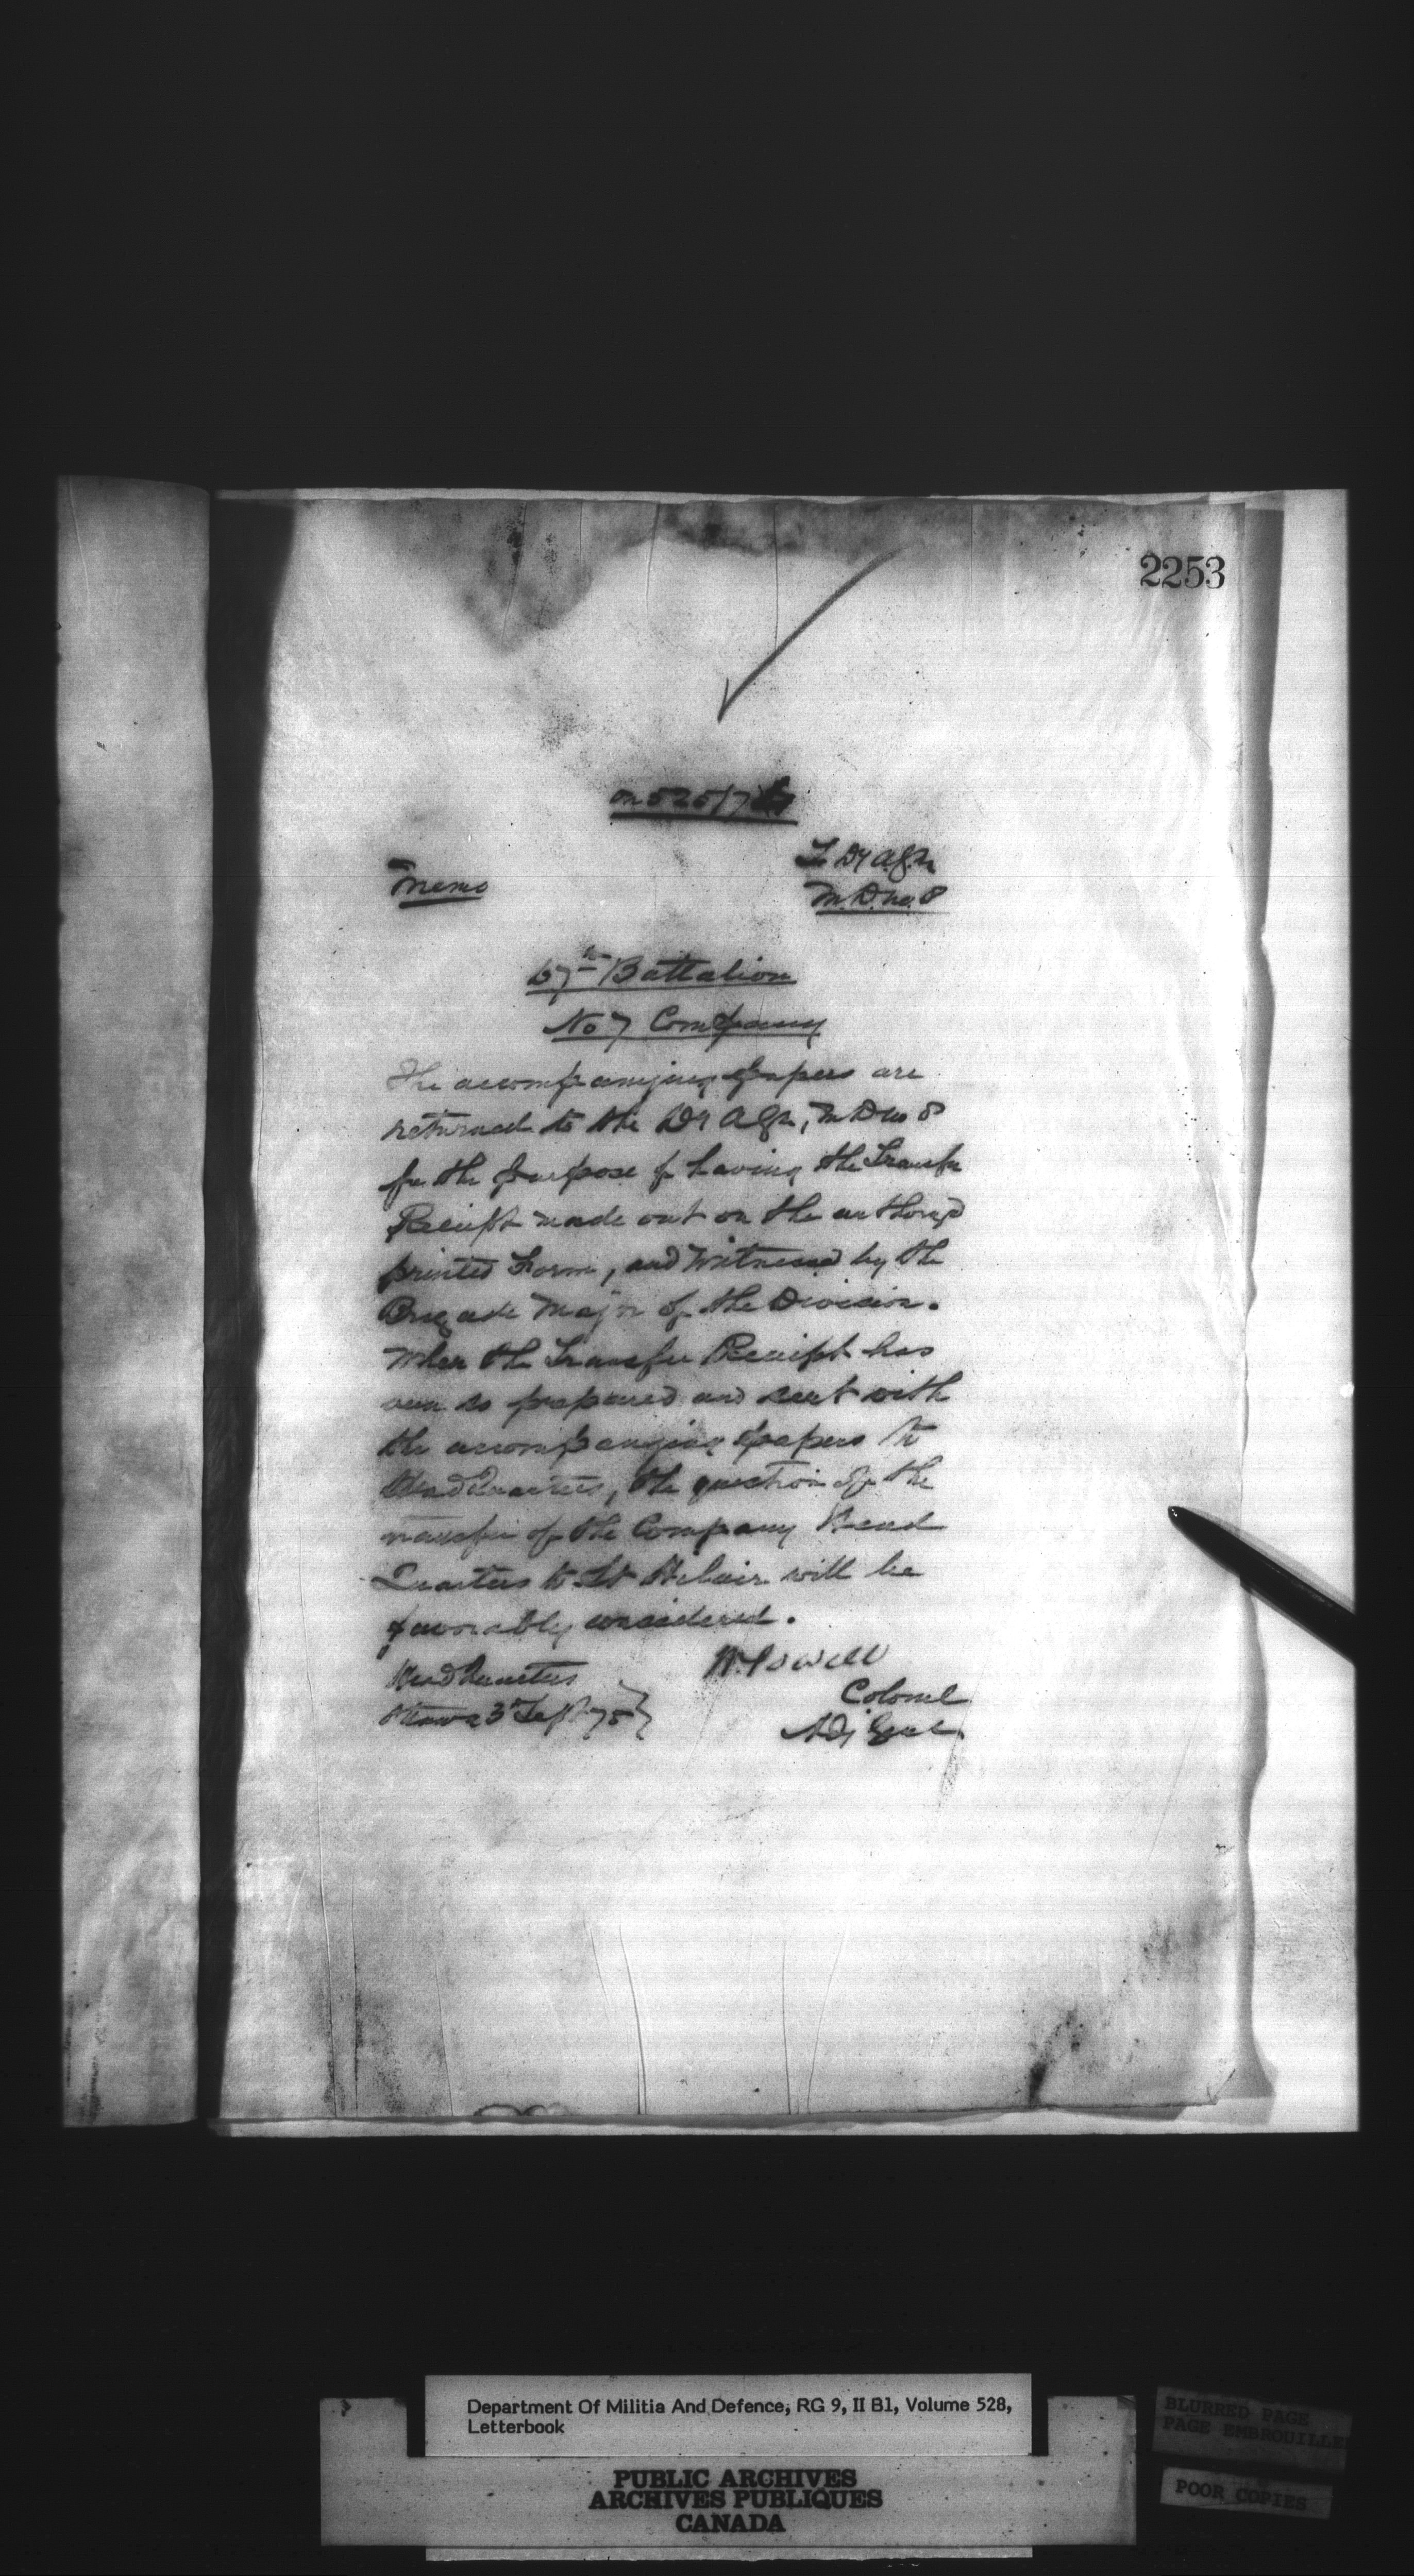 2253
Memo
To Dy A.G.M.
M.D. No. 8
67th Battalion
No 7 Company
The accompanying papers are
returned to the Dy A G M, M D No 8
for the purpose of having the Transfer
Receipt made out on the
printed Form, and witnessed by the
Brigade Major of the Division.
When the Transfer Receipt has
been so prepared and sent with
the accompanying papers to
Head Quarters, the question of the
transfer of the Company Head
Quarters to St Hilaire will be
favorably considered.
Head Quarters
Ottawa 3rd Sept 75
W. Powell
Colonel
Adj Genl.
Department Of Militia And Defence, RG 9, II B1, Volume 528,
Letterbook
PUBLIC ARCHIVES
ARCHIVES PUBLIQUES
CANADA
BLURRED PAGE
PAGE EMBROUILLE
POOR COPIES